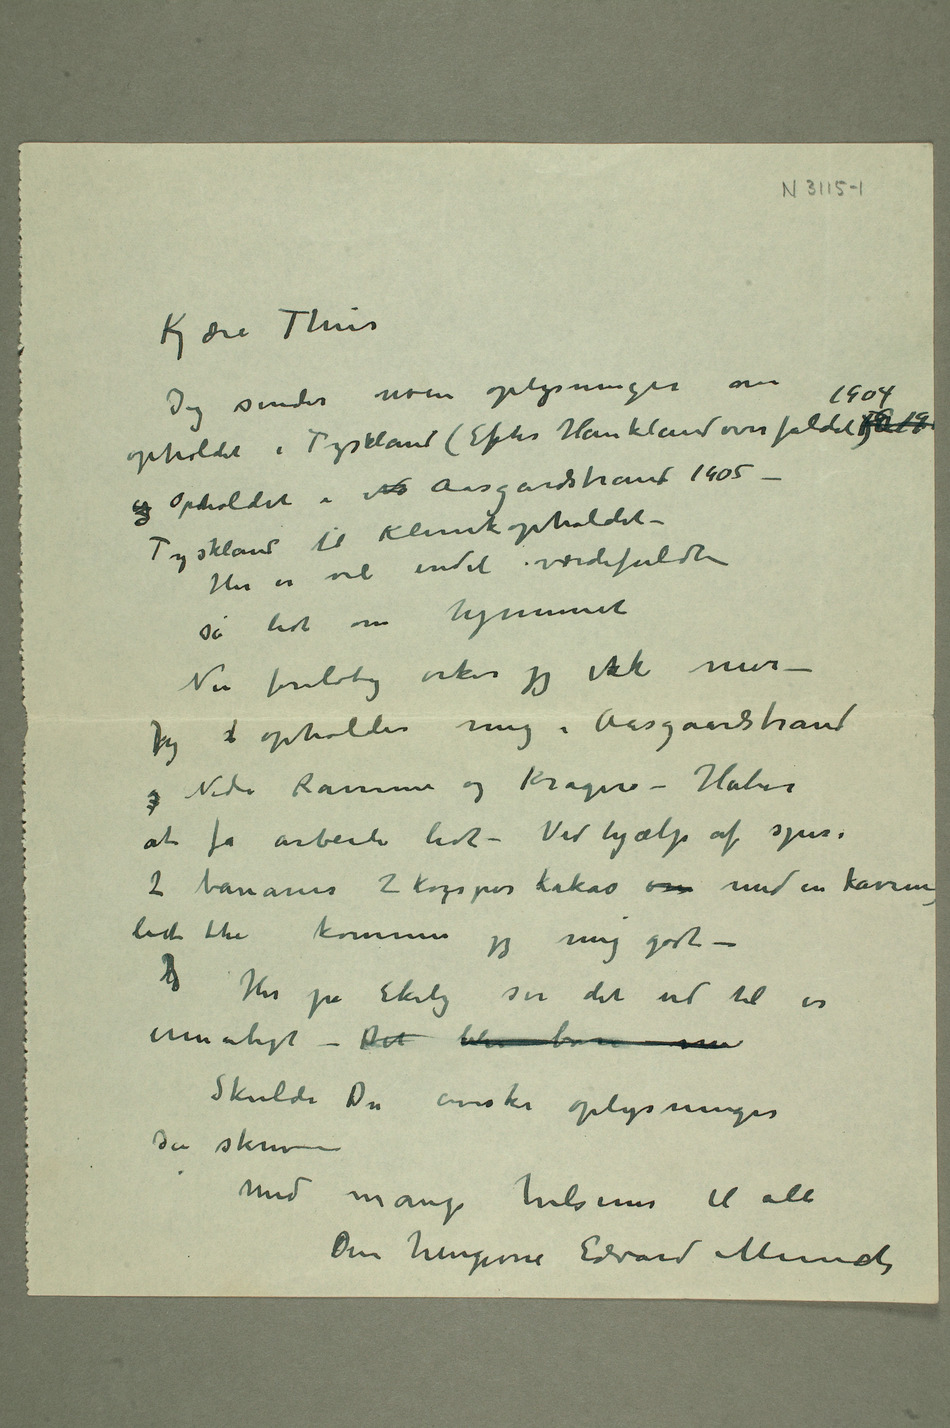 N 3115-1
Kjære Thiis
Jeg sender noen oplysninger om
1904
opholdet i Tyskland (Efter Hauklandoverfaldet)
og Opholdet i Aasgardstrand 1905 –
Tyskland til Klinikopholdet –
Her er vel endel værdifuldt –
så lidt om hjemmet
Nu foreløbig orker jeg ikke mer –
Jeg opholder mig i Aasgaardstrand
og Nedre Ramme og Kragerø – Håber
at få arbeide lidt – Ved hjælp af spise
2 bananer 2 kogspis kakao med en kavring
lidt the kommer jeg mig godt –
Her på Ekely ser det ud til er
umuligt – Det blir bare
Skulde Du ønske oplysninger
så skriv –
Med mange hilsener til alle
Din hengivne Edvard Munch